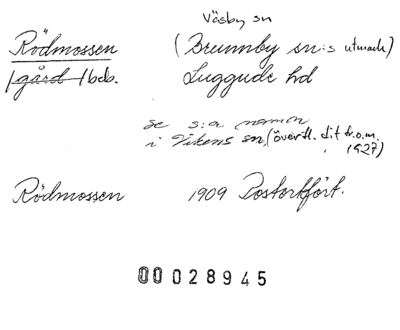 Väsby sn
Rödmossen (Brunnby sn:s utmark)
/gård/ beb. Luggude hd
se s:a namn
i Vikens sn, (överfl. dit fr.o.m. 1927)
Rödmossen 1909 Postortfört.
00028945